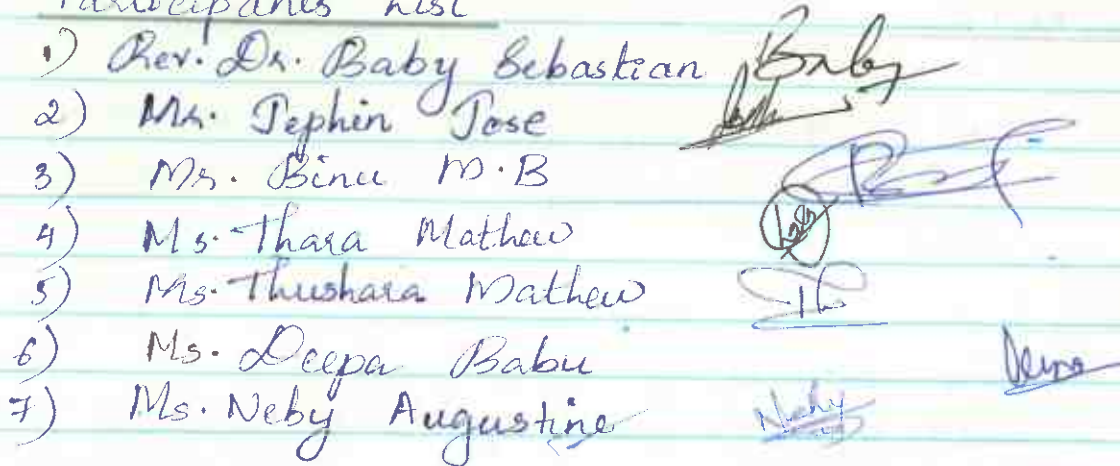 Participants List
1) Rev. Dr. Baby Sebastian Baby
2) Mr. Jephin Jose
3) Mr. Binu M.B
4) Ms. Thara Mathew
5) Ms. Thushara Mathew
6) Ms. Deepa Babu
7) Ms. Neby Augustine Neby